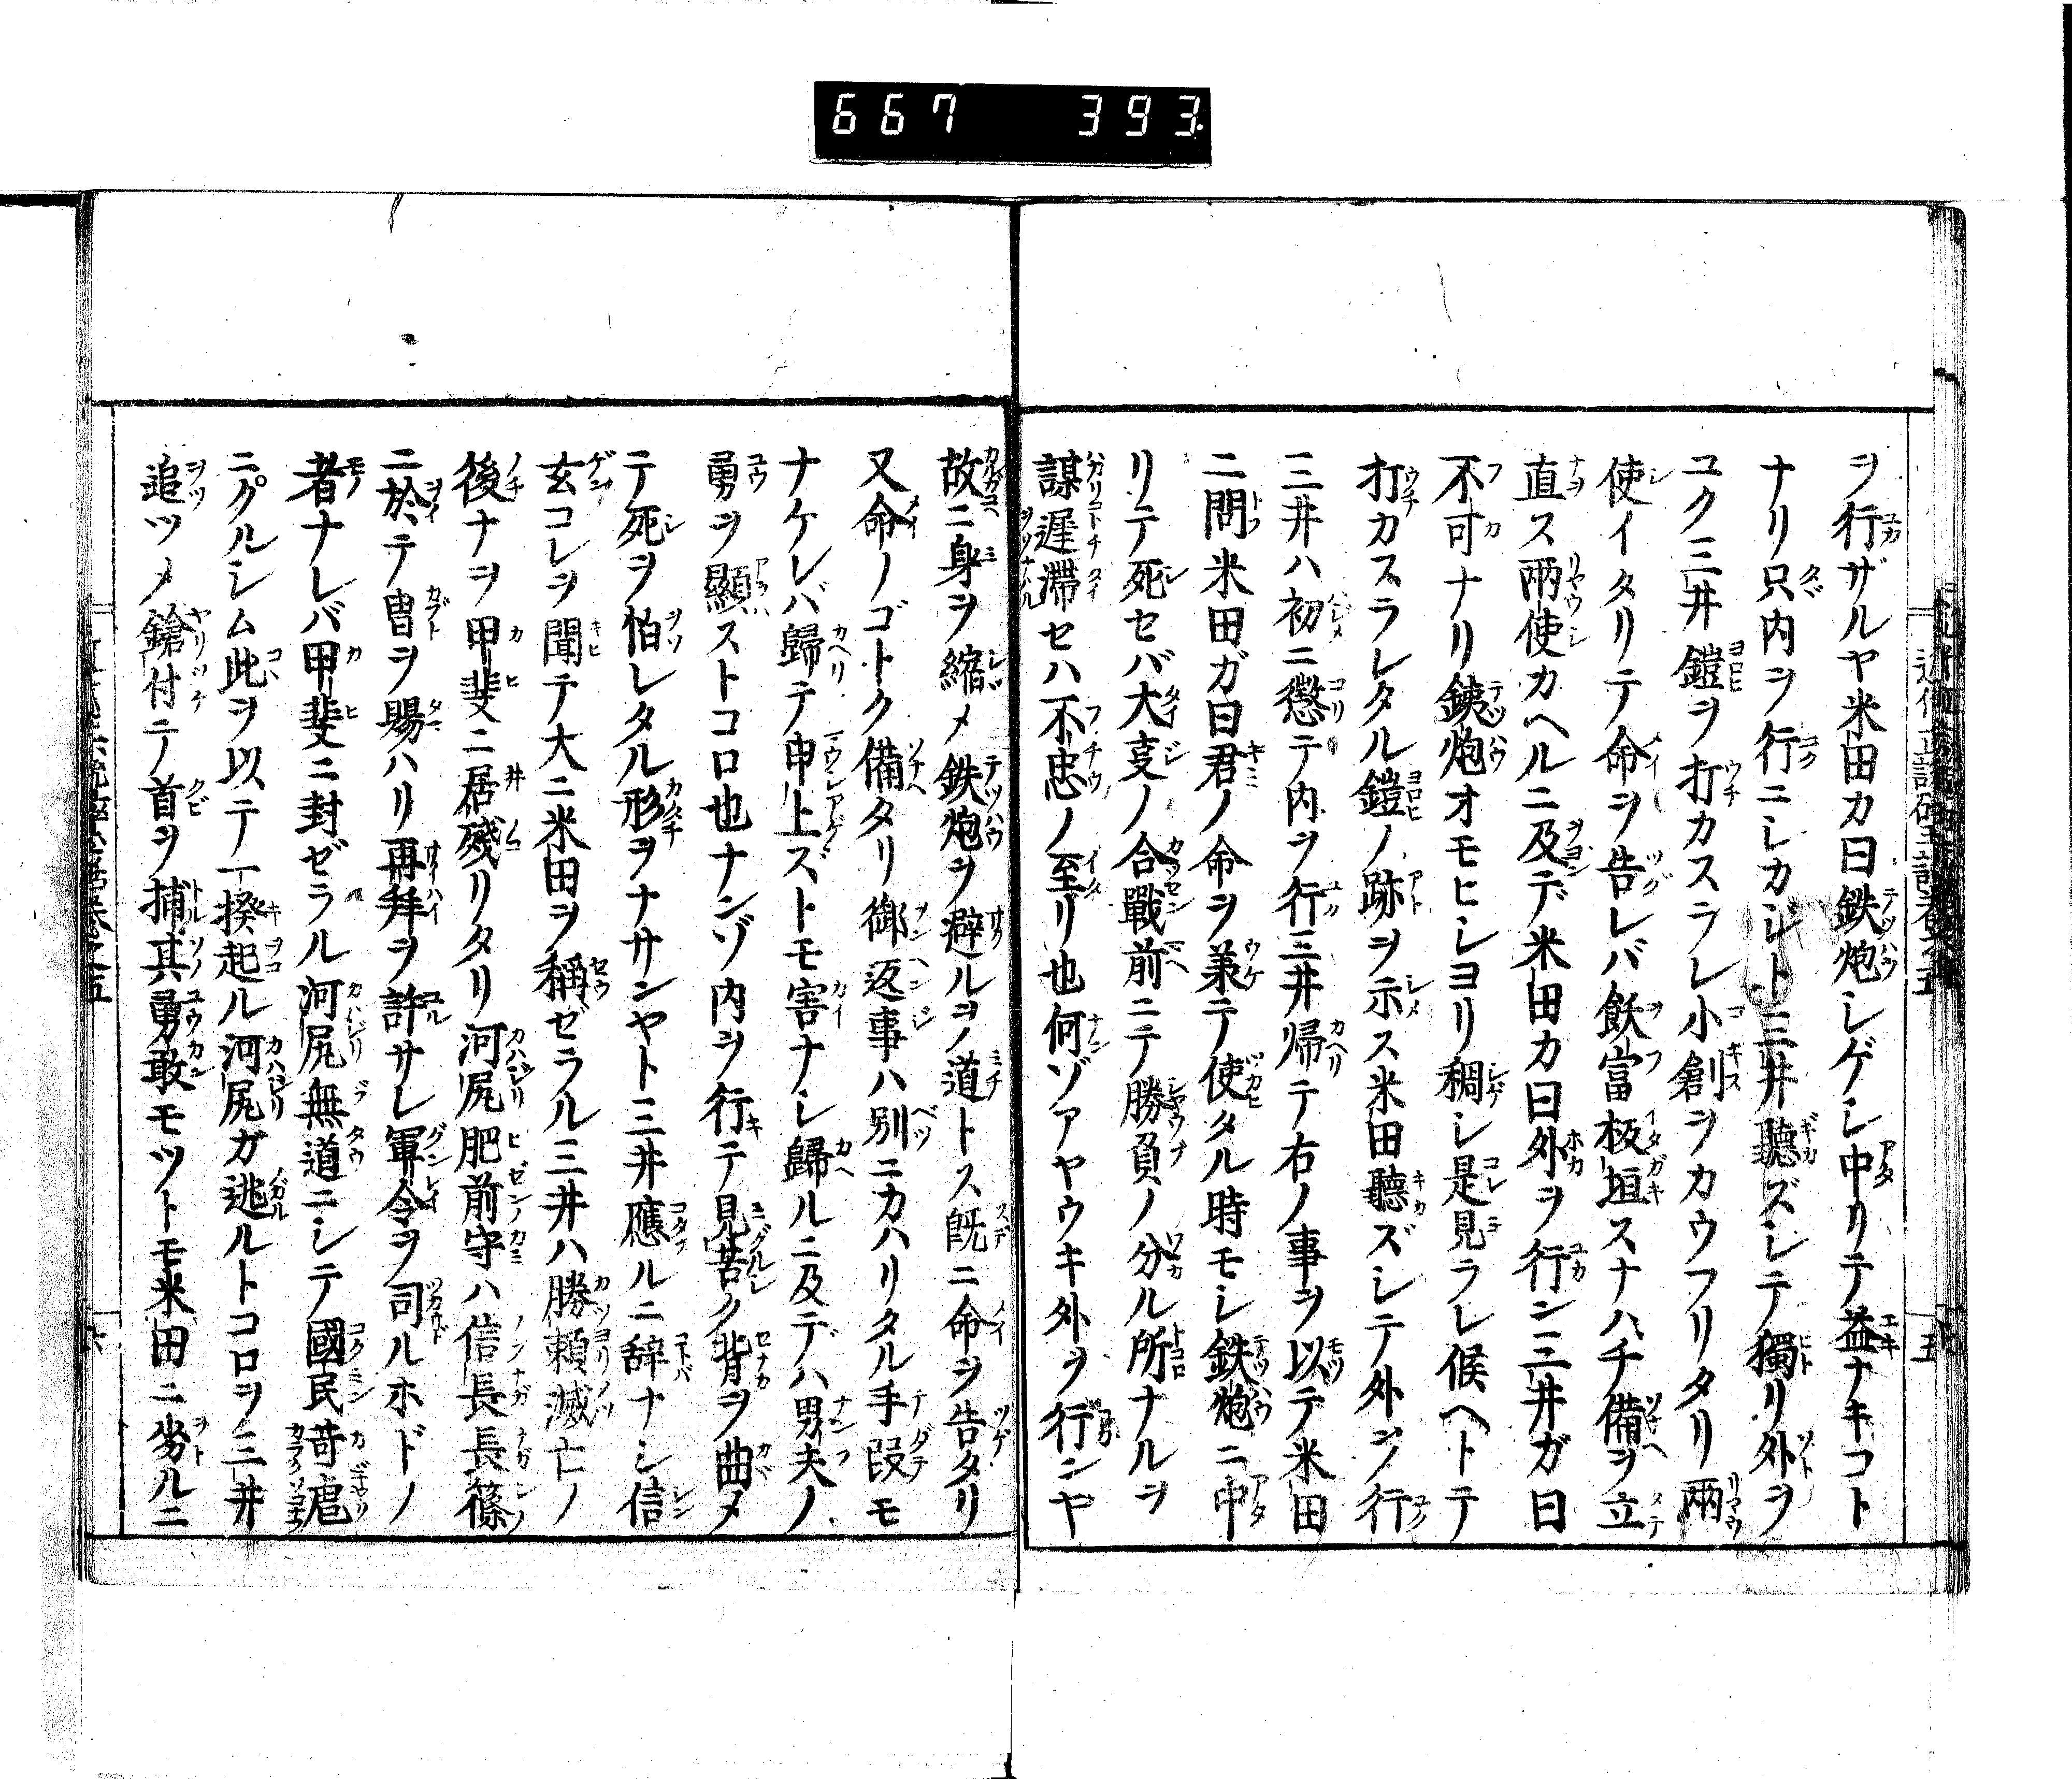 667 393
ヲ行ザルヤ米田カ曰鉄炮シゲシ中リテ益ナキコト
ナリ只内ヲ行ニシカジト三井聽ズシテ獨リ外ヲ
ユク三井鎧ヲ打カスラレ小創ヲカウフリタリ兩
使イタリテ命ヲ告レバ飫富板垣スナハチ備ヲ立
直ス兩使カヘルニ及デ米田カ曰外ヲ行ン三井ガ曰
不可ナリ鉄炮オモヒシヨリ稠シ是見ラレ候ヘトテ
打カスラレタル鎧ノ跡ヲ示ス米田聽ズシテ外ヲ行
三井ハ初ニ懲テ内ヲ行三井帰テ右ノ事ヲ以テ米田
ニ問米田ガ曰君ノ命ヲ兼テ使タル時モシ鉄炮ニ中
リテ死セバ大叓ノ合戰前ニテ勝負ノ分ル所ナルヲ
謀遅滞セハ不忠ノ至リ也何ゾアヤウキ外ヲ行ンヤ
故ニ身ヲ縮メ鉄炮ヲ避ルヲノ道トス既ニ命ヲ告タリ
又命ノゴトク備タリ御返事ハ別ニカハリタル手段モ
ナケレバ歸テ申上ズトモ害ナシ歸ルニ及デハ男夫ノ
勇ヲ顯ストコロ也ナンゾ内ヲ行テ見苦ク背ヲ曲メ
テ死ヲ怕レタル形ヲナサンヤト三井應ルニ辞ナシ信
玄コレヲ聞テ大ニ米田ヲ稱ゼラル三井ハ勝頼滅亡ノ
後ナヲ甲斐ニ居殘リタリ河尻肥前守ハ信長長篠
ニ於テ冑ヲ賜ハリ再拜ヲ許サレ軍令ヲ司ルホドノ
者ナレバ甲斐ニ封ゼラル河尻無道ニシテ國民苛虐
ニクルシム此ヲ以テ一揆起ル河尻ガ逃ルトコロヲ三井
追ツメ鎗付テ首ヲ捕其勇敢モツトモ米田ニ劣ルニ